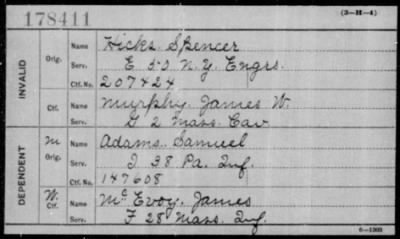 178411
(3-H-4)
INVALID
Orig. Name Hicks Spencer
Serv. E 50 N.Y. Engrs.
Ctf. No. 207424
Ctf. Name Murphy, James W.
Serv. G 2 Mass. Cav
DEPENDENT
M Orig. Name Adams, Samuel
Serv. I 38 Pa. Inf.
Ctf. No. 147608
W. Ctf. Name McEvoy, James
Serv. F 28 Mass. Inf.
6-1303